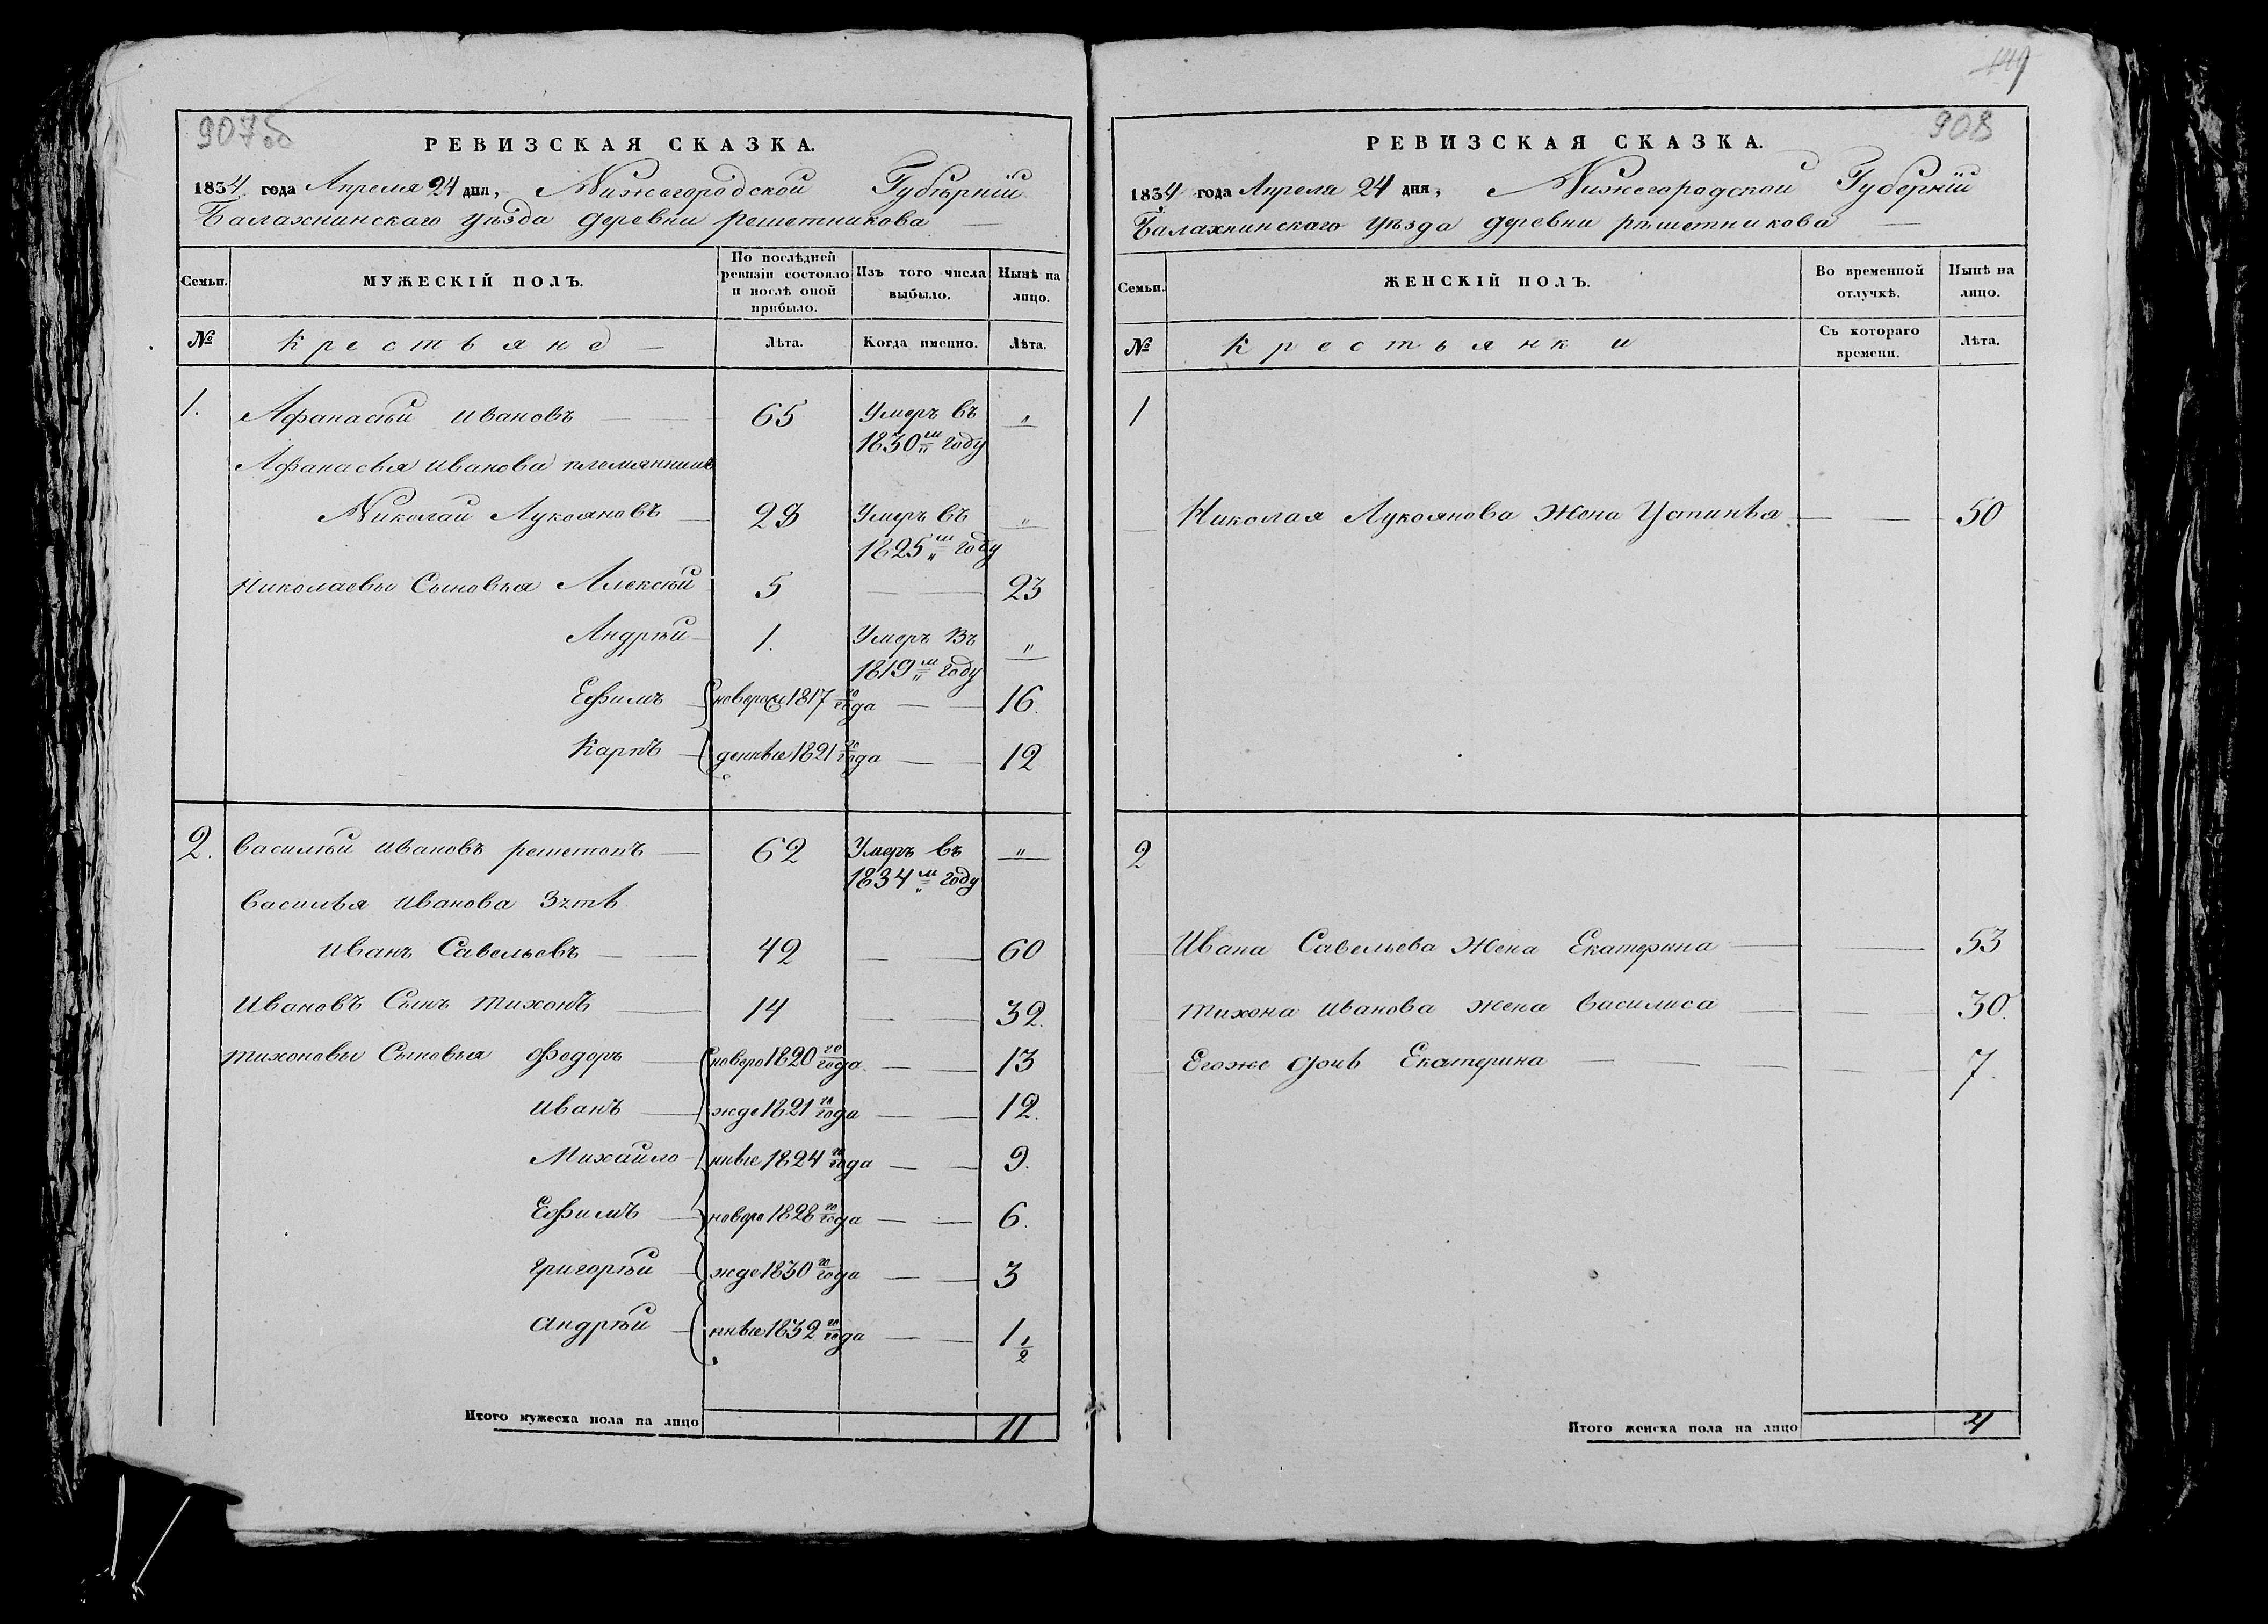 907об
РЕВИЗСКАЯ СКАЗКА.
1834 года Апреля 24 дня, Нижегородской Губѣрніи
Балахнинскаго уѣзда деревни решетникова
Семьи.
МУЖЕСКІЙ ПОЛЪ.
По послѣдней ревизіи состояло и послѣ оной прибыло.
Изъ того числа выбыло.
Нынѣ на лицо.
№
Крестьяне
Лѣта.
Когда именно.
Лѣта.
1. Афанасѣй ивановъ 65 Умеръ въ 1830м году "
Афанасья иванова племянникъ
Николай Лукояновъ 29 Умеръ въ 1825м году "
Николаевы Сыновья Алексѣй 5 23
Андрѣй 1. Умеръ въ 1819м году "
Ефимъ 1817го года 16.
Карпъ 1821го года 12
2. Василѣй ивановъ 62 Умеръ въ 1834м году "
Василья иванова Зять
иванъ Савельевъ 42 60
ивановъ Сынъ тихонъ 14 32.
тихоновы Сыновья федоръ новоро 1820го года 13
иванъ жде 1821го года 12.
Михайло нные 1824го года 9.
Ефимъ новоро 1828го года 6.
григорѣй жде 1830го года 3
андрѣй нные 1832го года 1 1/2
Итого мужеска пола на лицо 11
149
908
РЕВИЗСКАЯ СКАЗКА.
1834 года Апреля 24 дня, Нижегородской Губерніи
Балахнинскаго уѣзда деревни рѣшетникова
Семьи.
ЖЕНСКІЙ ПОЛЪ.
Во временной отлучкѣ.
Нынѣ на лицо.
№
Крестьянки
Съ котораго времени.
Лѣта.
1
Николая Лукоянова Жена Устинья 50
2
Ивана Савельева Жена Екатерина 53
тихона иванова жена василиса 30.
Егоже дочь Екатерина 7.
Итого женска пола на лицо 4